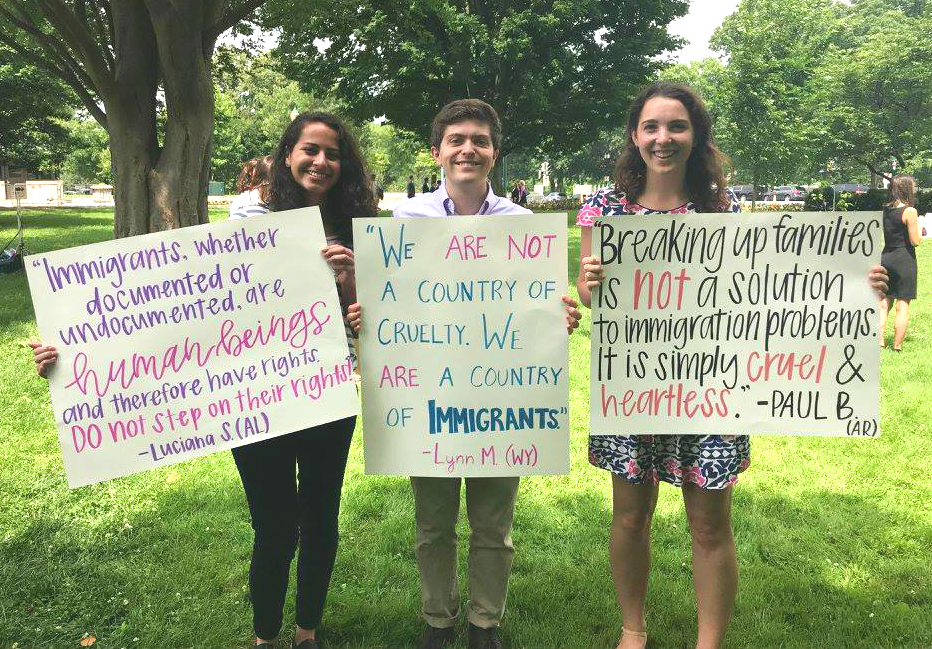 "Immigrants, whether
documented or
undocumented, are
human beings
and therefore have rights.
DO not step on their rights!"
-Luciana S. (AL)
"WE ARE NOT
A COUNTRY OF
CRUELTY. WE
ARE A COUNTRY
OF IMMIGRANTS."
-Lynn M. (WY)
"Breaking up families
is not a solution
to immigration problems.
It is simply cruel &
heartless." -PAUL B.
(AR)